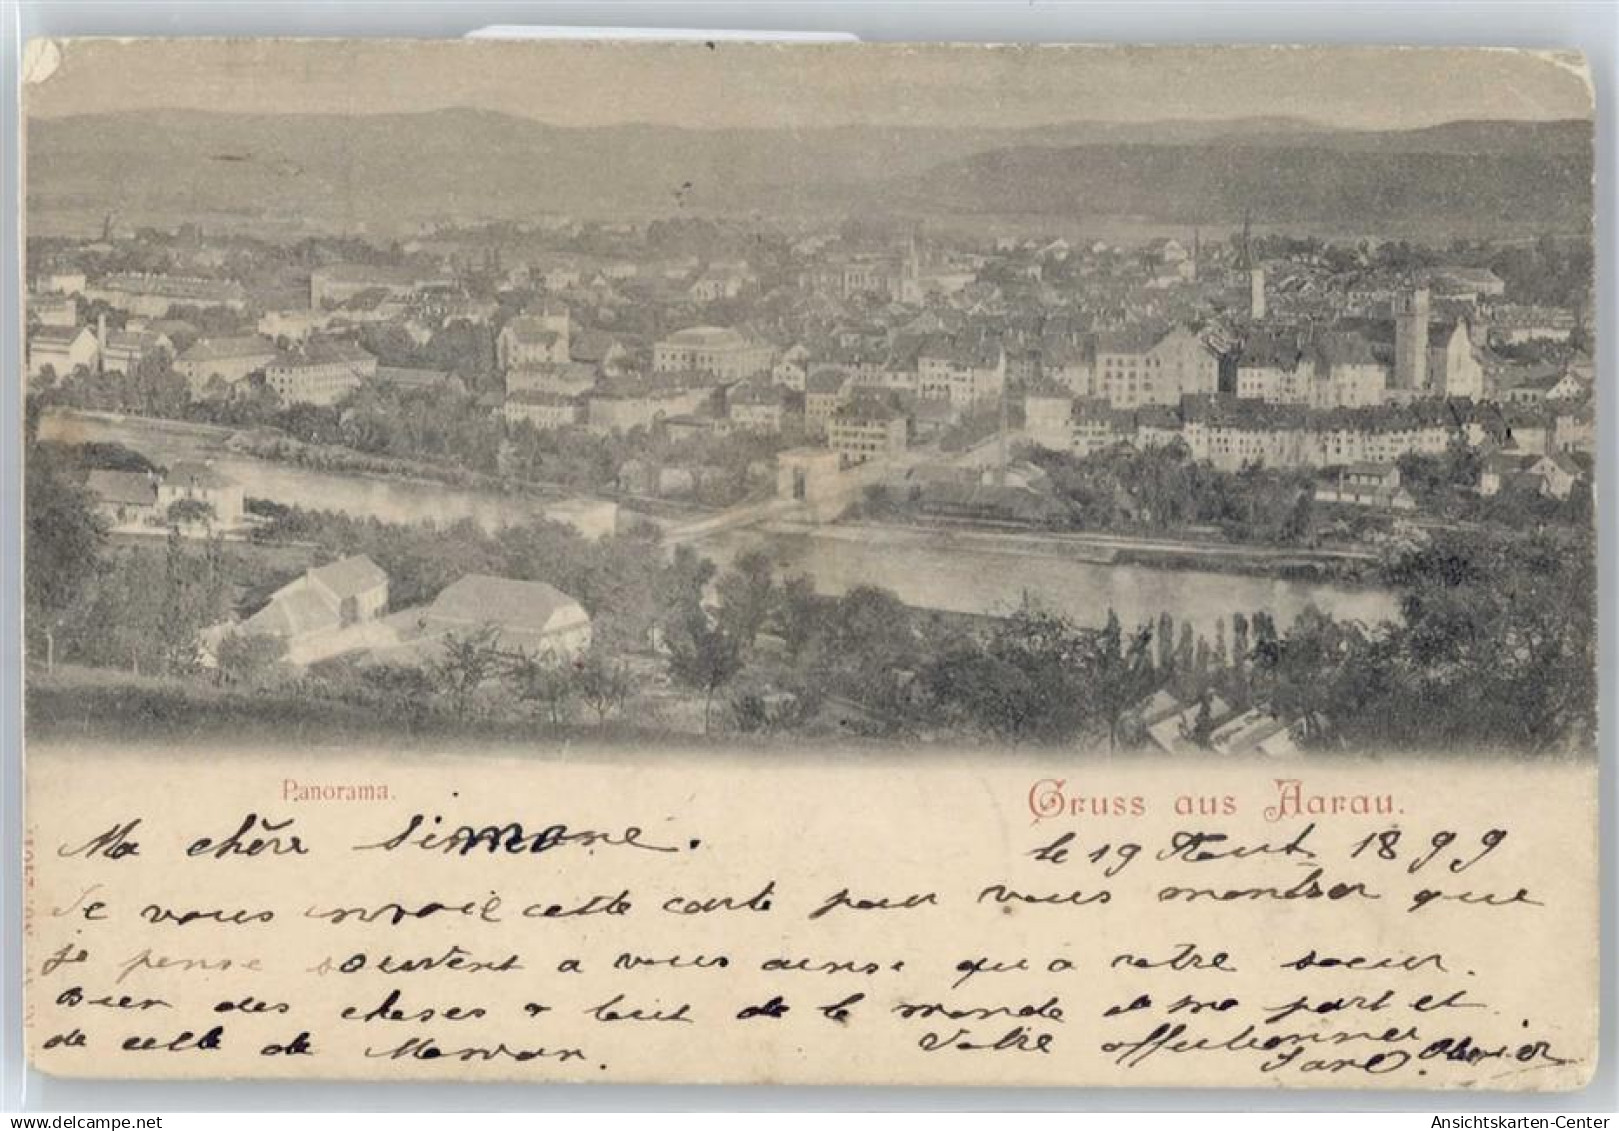 Panorama.
Gruss aus Aarau.
Ma chère Simone.
le 19 Aout 1899
Je vous envoie cette carte pour vous montrer que
je pense souvent a vous ainsi qu'a votre soeur.
Bien des choses a tout de le monde de ma part et
de celle de
Votre affectionnee
www.delcampe.net
Ansichtskarten-Center